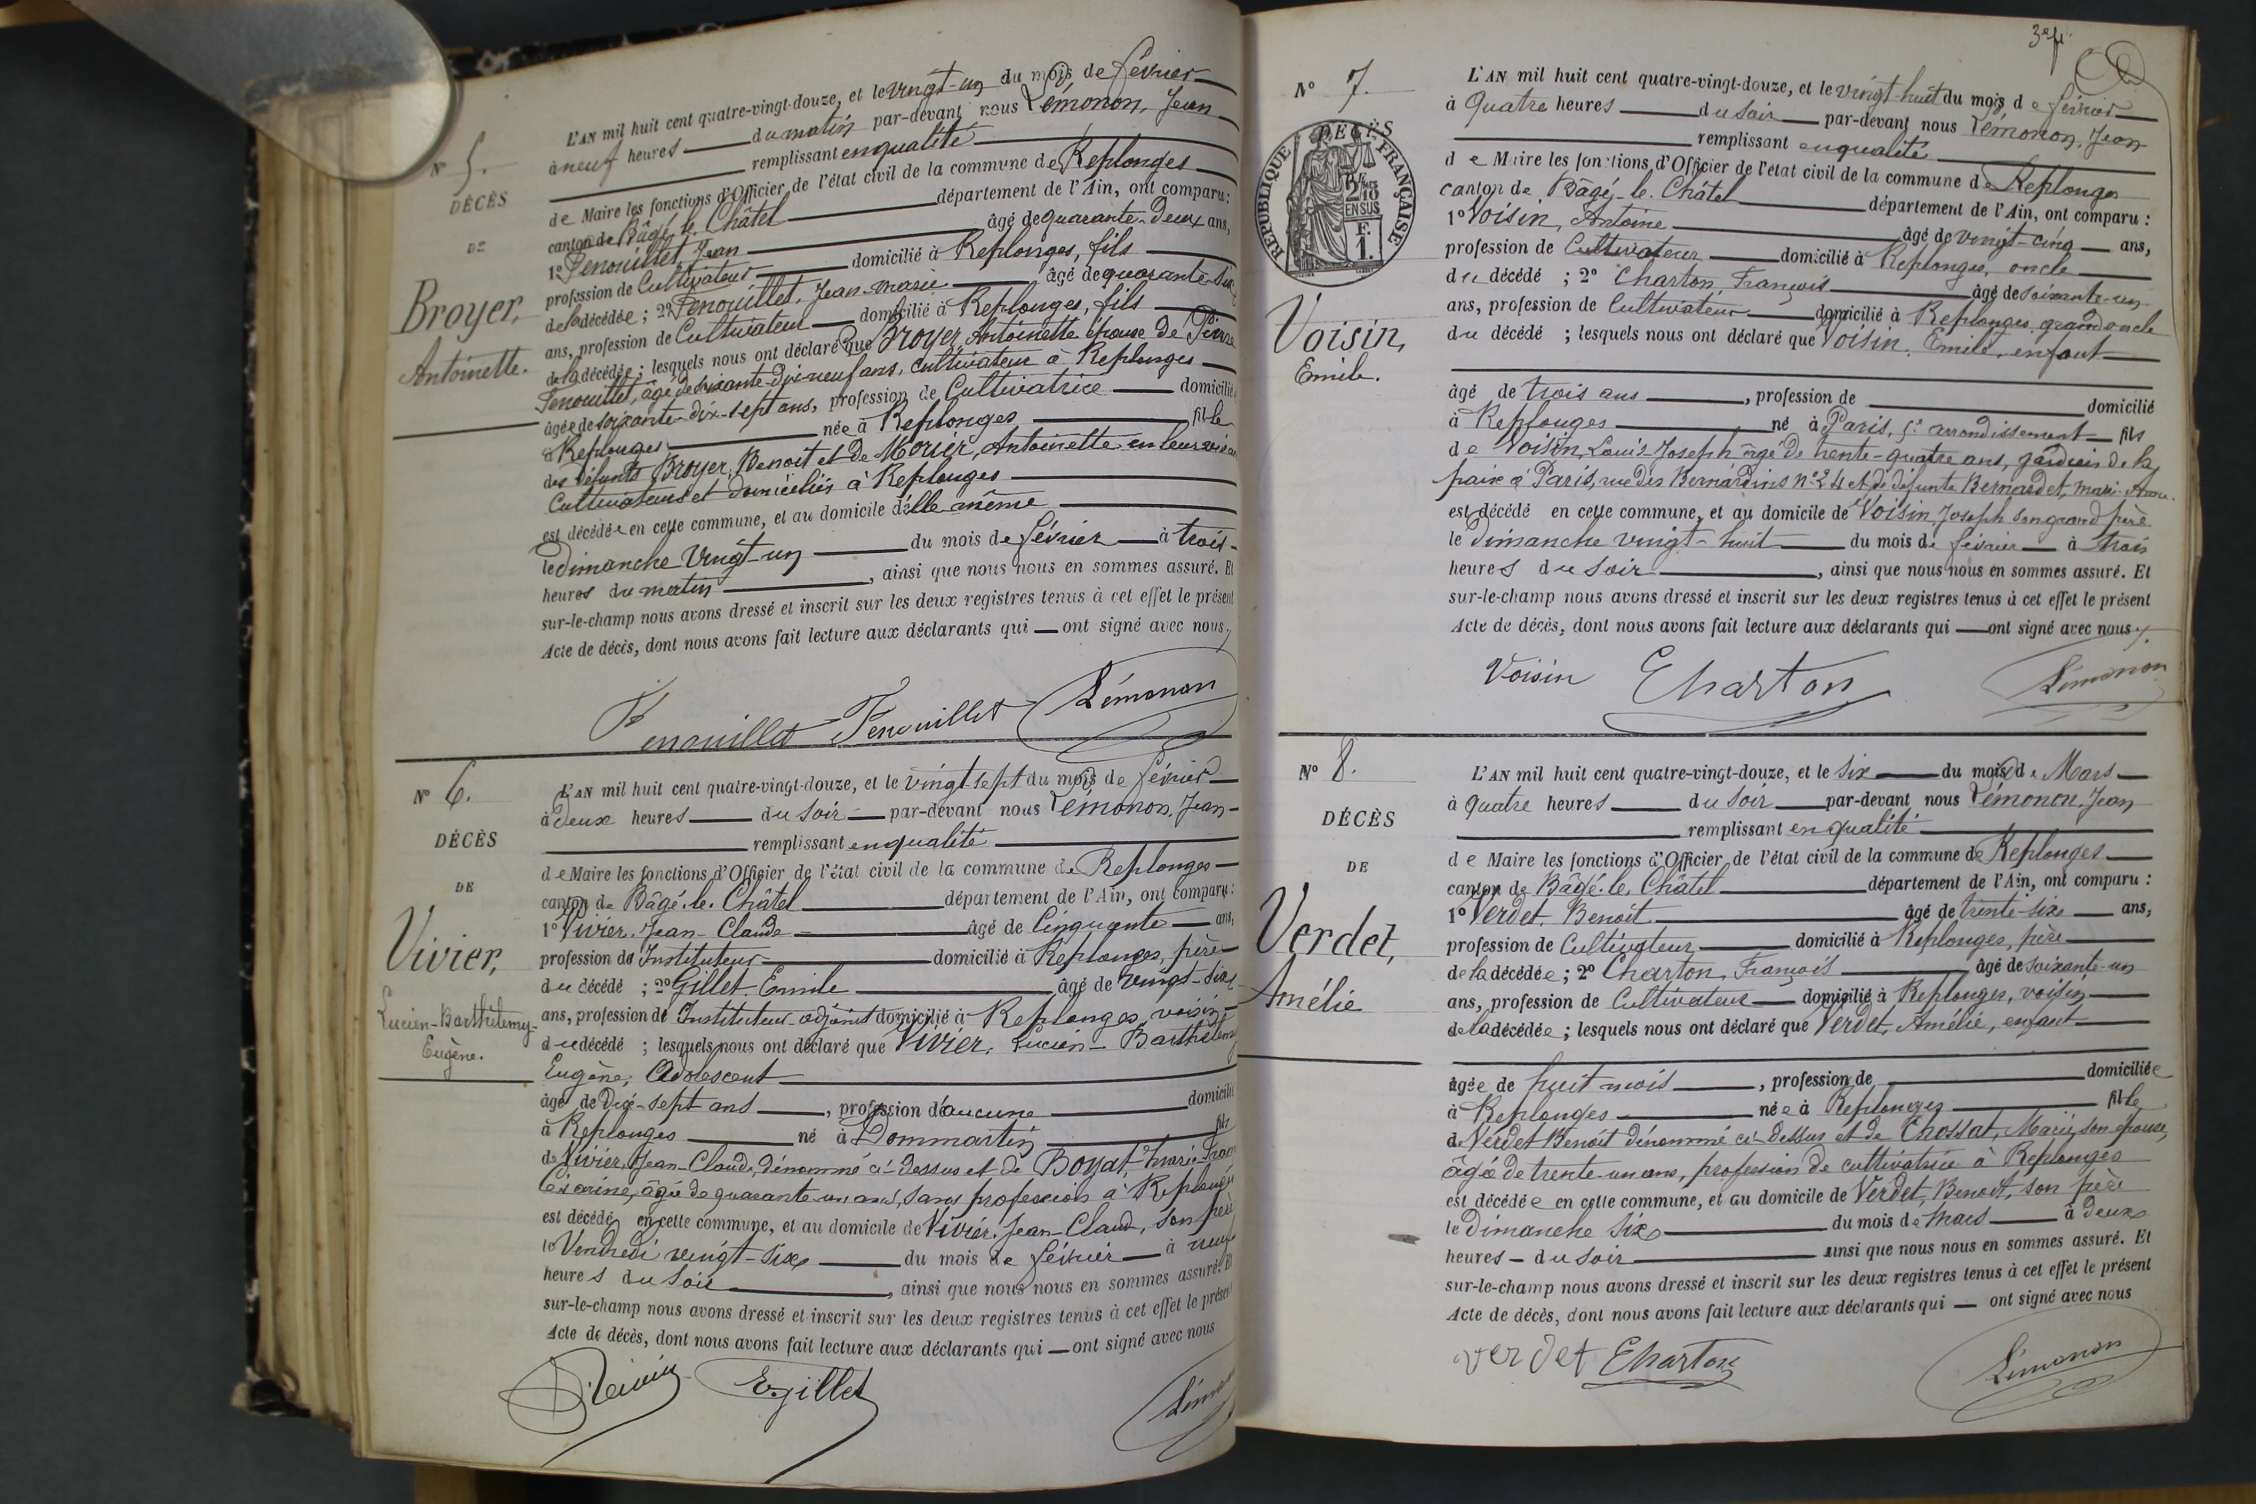 N° 5.
DÉCÈS
DE
Broyer,
Antoinette.
L'AN mil huit cent quatre-vingt-douze, et le vingt-un du mois de février
à neuf heures du matin par-devant nous Lémonon, Jean
remplissant en qualité
de Maire les fonctions d'Officier de l'état civil de la commune de Replonges
canton de Bâgé-le-Châtel département de l'Ain, ont comparu :
1° Fenouillet, Jean âgé de quarante-deux ans,
profession de Cultivateur domicilié à Replonges, fils
de la décédée ; 2° Fenouillet, Jean-Marie âgé de quarante-six
ans, profession de Cultivateur domicilié à Replonges, fils
de la décédée ; lesquels nous ont déclaré que Broyer, Antoinette épouse de Pierre
Fenouillet, âgé de soixante-dix-neuf ans, cultivateur à Replonges
âgée de soixante-dix-sept ans, profession de Cultivatrice domiciliée
à Replonges née à Replonges fille
des défunts Broyer, Benoit et de Morier, Antoinette en leur vivant
Cultivateurs et domiciliés à Replonges
est décédée en cette commune, et au domicile d'elle même
le dimanche vingt-un du mois de février à trois
heures du matin , ainsi que nous nous en sommes assuré. Et
sur-le-champ nous avons dressé et inscrit sur les deux registres tenus à cet effet le présent
Acte de décès, dont nous avons fait lecture aux déclarants qui ont signé avec nous.
Fenouillet Fenouillet Lémonon
N° 6.
DÉCÈS
DE
Vivier,
Lucien-Barthélemy-
Eugène.
L'AN mil huit cent quatre-vingt-douze, et le vingt-sept du mois de février
à deux heures du soir par-devant nous Lémonon, Jean
remplissant en qualité
de Maire les fonctions d'Officier de l'état civil de la commune de Replonges
canton de Bâgé-le-Châtel département de l'Ain, ont comparu :
1° Vivier, Jean-Claude âgé de cinquante ans,
profession de Instituteur domicilié à Replonges, père
du décédé ; 2° Gillet, Emile âgé de vingt-six
ans, profession de Instituteur-adjoint domicilié à Replonges, voisin
du décédé ; lesquels nous ont déclaré que Vivier, Lucien-Barthélemy
Eugène, adolescent
âgé de dix-sept ans , profession d'aucune domicilié
à Replonges né à Dommartin fils
de Vivier, Jean-Claude, dénommé ci-dessus et de Boyat, Marie-
âgée de quarante-un ans, sans profession à Replonges
est décédé en cette commune, et au domicile de Vivier, Jean-Claude, son père
le Vendredi vingt-six du mois de février à neuf
heures du soir , ainsi que nous nous en sommes assuré. Et
sur-le-champ nous avons dressé et inscrit sur les deux registres tenus à cet effet le présent
Acte de décès, dont nous avons fait lecture aux déclarants qui ont signé avec nous
Vivier E. Gillet Lémonon
3e f.
N° 7.
RÉPUBLIQUE FRANÇAISE
2/10
EN SUS
F.
1.
Voisin,
Emile.
L'AN mil huit cent quatre-vingt-douze, et le vingt-huit du mois de février
à quatre heures du soir par-devant nous Lémonon, Jean
remplissant en qualité
de Maire les fonctions d'Officier de l'état civil de la commune de Replonges
canton de Bâgé-le-Châtel département de l'Ain, ont comparu :
1° Voisin, Antoine âgé de vingt-cinq ans,
profession de Cultivateur domicilié à Replonges, oncle
du décédé ; 2° Charton, François âgé de soixante-un
ans, profession de Cultivateur domicilié à Replonges, grand oncle
du décédé ; lesquels nous ont déclaré que Voisin, Emile, enfant
âgé de trois ans , profession de domicilié
à Replonges né à Paris, 5e arrondissement fils
de Voisin, Louis Joseph âgé de trente-quatre ans, gardien de la
paix à Paris, rue des Bernardins n° 24 et de défunte Bernardet, Marie-Anne
est décédé en cette commune, et au domicile de Voisin, Joseph son grand père
le dimanche vingt-huit du mois de février à trois
heures du soir , ainsi que nous nous en sommes assuré. Et
sur-le-champ nous avons dressé et inscrit sur les deux registres tenus à cet effet le présent
Acte de décès, dont nous avons fait lecture aux déclarants qui ont signé avec nous.
Voisin Charton Lémonon
N° 8.
DÉCÈS
DE
Verdet,
Amélie
L'AN mil huit cent quatre-vingt-douze, et le six du mois de Mars
à quatre heures du soir par-devant nous Lémonon, Jean
remplissant en qualité
de Maire les fonctions d'Officier de l'état civil de la commune de Replonges
canton de Bâgé-le-Châtel département de l'Ain, ont comparu :
1° Verdet, Benoit âgé de trente-six ans,
profession de Cultivateur domicilié à Replonges, père
de la décédée ; 2° Charton, François âgé de soixante-un
ans, profession de Cultivateur domicilié à Replonges, voisin
de la décédée ; lesquels nous ont déclaré que Verdet, Amélie, enfant
âgée de huit mois , profession de domiciliée
à Replonges née à Replonges fille
de Verdet Benoit dénommé ci-dessus et de Chossat, Marie, son épouse,
âgée de trente-un ans, profession de cultivatrice à Replonges
est décédée en cette commune, et au domicile de Verdet, Benoit, son père
le dimanche six du mois de Mars à deux
heures du soir ainsi que nous nous en sommes assuré. Et
sur-le-champ nous avons dressé et inscrit sur les deux registres tenus à cet effet le présent
Acte de décès, dont nous avons fait lecture aux déclarants qui ont signé avec nous
verdet Charton Lémonon